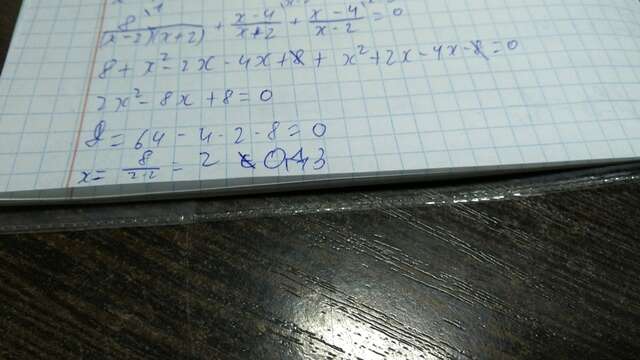 8/(x-2)(x+2) + x-4/x+2 + x-4/x-2 = 0
8 + x² - 2x - 4x + 8 + x² + 2x - 4x - 8 = 0
2x² - 8x + 8 = 0
D = 64 - 4·2·8 = 0
x = 8/2·2 = 2